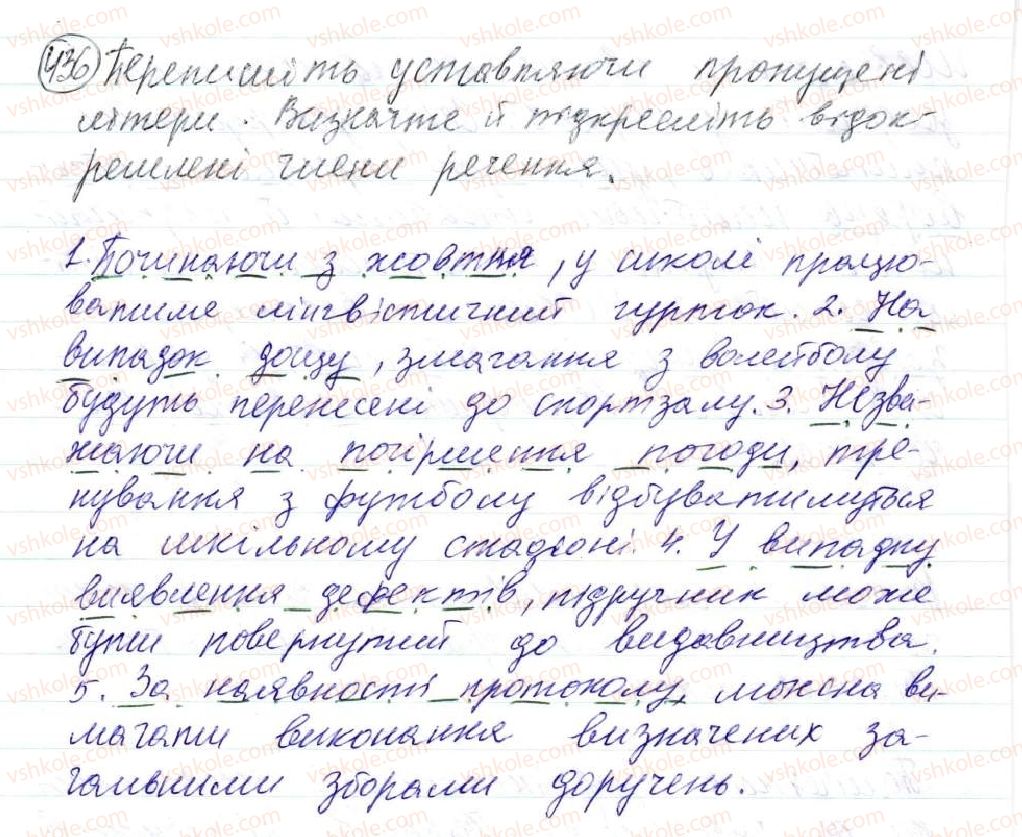 436 Перепишіть уставляючи пропущені
літери. Визначте й підкресліть відок-
ремлені члени речення.
1. Починаючи з жовтня, у школі працю-
ватиме лінгвістичний гурток. 2. На
випадок дощу, змагання з волейболу
будуть перенесені до спортзалу. 3. Незва-
жаючи на погіршення погоди, тре-
нування з футболу відбуватимуться
на шкільному стадіоні. 4. У випадку
виявлення дефектів, підручник може
бути повернутий до видавництва.
5. За наявності протоколу, можна ви-
магати виконання визначених за-
гальними зборами доручень.